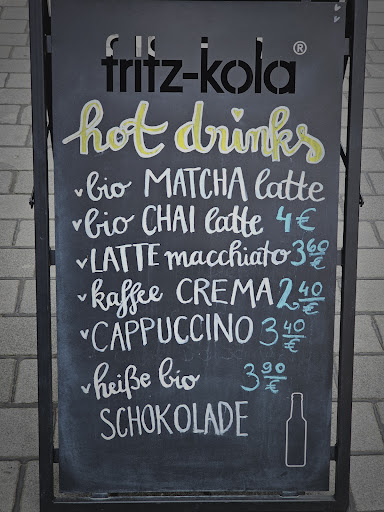 fritz-kola®
hot drinks
bio MATCHA latte
bio CHAI latte 4€
LATTE macchiato 3 60 €
kaffee CREMA 2 40 €
CAPPUCCINO 3 40 €
heiße bio 3 90 €
SCHOKOLADE